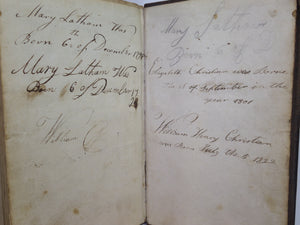 Mary Latham Was
Born 6th of December 17
Mary Latham Was
Born 6 of December 17
William C
Mary Latham
Born 6 of
Elizabeth Christian was Borne
the 8 of September in the
year 1801
William Henry Christian
was Borne July the 5 1822